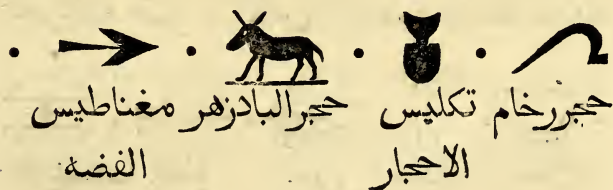 حجر رخام تكليس حجر البادزهر مغناطيس
الاحجار الفضه